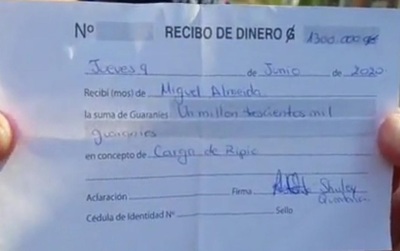 Nº RECIBO DE DINERO ₲ 1300.000 gs
Jueves 9 de Junio de 2020
Recibí (mos) de Miguel Almeida
la suma de Guaraníes Un millon trescientos mil
guaraníes
en concepto de Carga de Ripio
Aclaración Firma
Cedula de Identidad Nº Sello